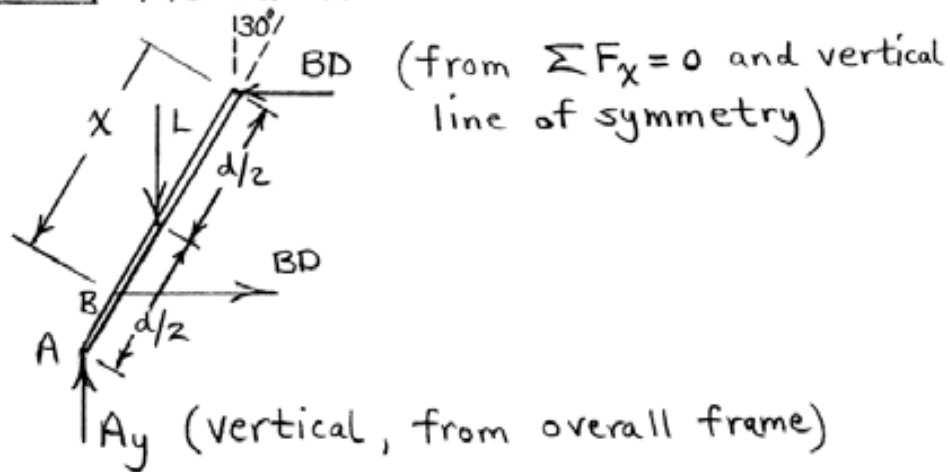 30°
BD (from ΣFₓ = 0 and vertical
line of symmetry)
x
L
d/2
BD
B
d/2
A
Ay (vertical, from overall frame)